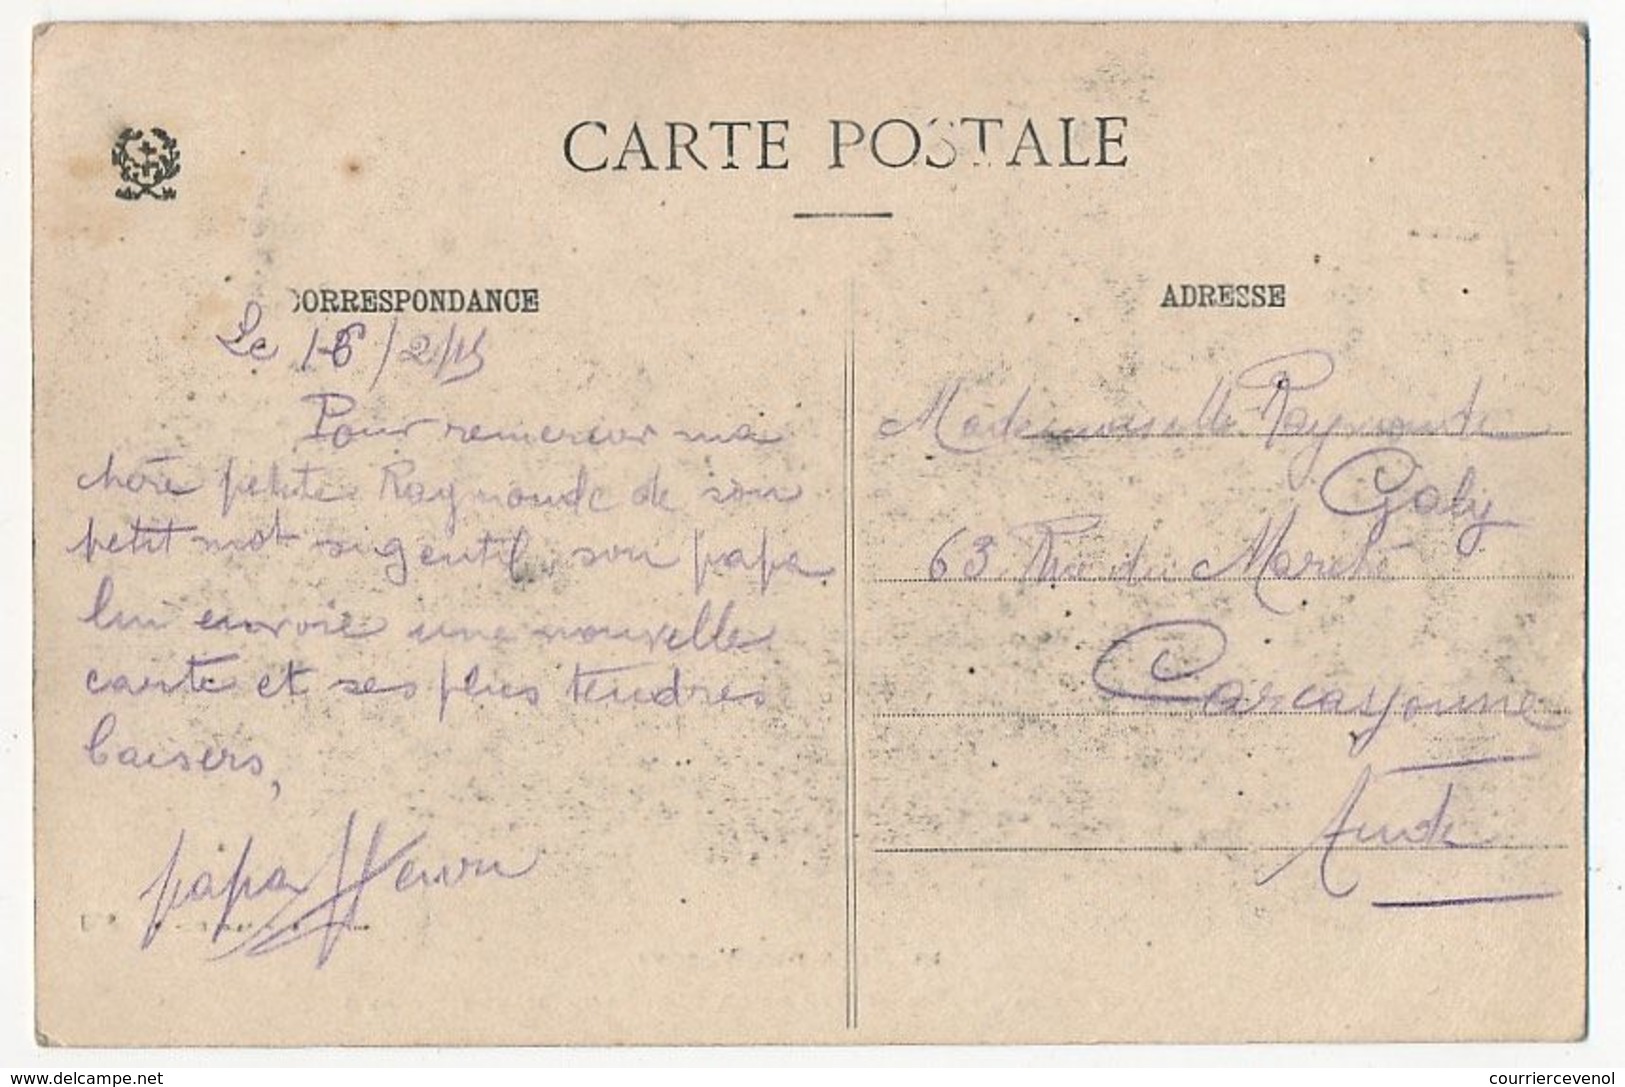 CARTE POSTALE
CORRESPONDANCE
Le 16/2/15
Pour remercier ma
chère petite Raymonde de son
petit mot si gentil, son papa
lui envoie une nouvelle
carte et ses plus tendres
baisers,
papa Henri
ADRESSE
Mademoiselle Raymonde
Galy
63 Rue du Marché
Carcassonne
Aude
delcampe.net
courriercevenol